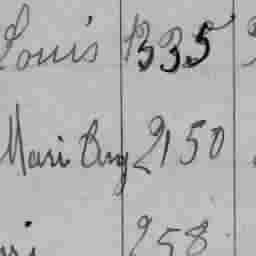 Louis 1335
Mari Ang 2150
258